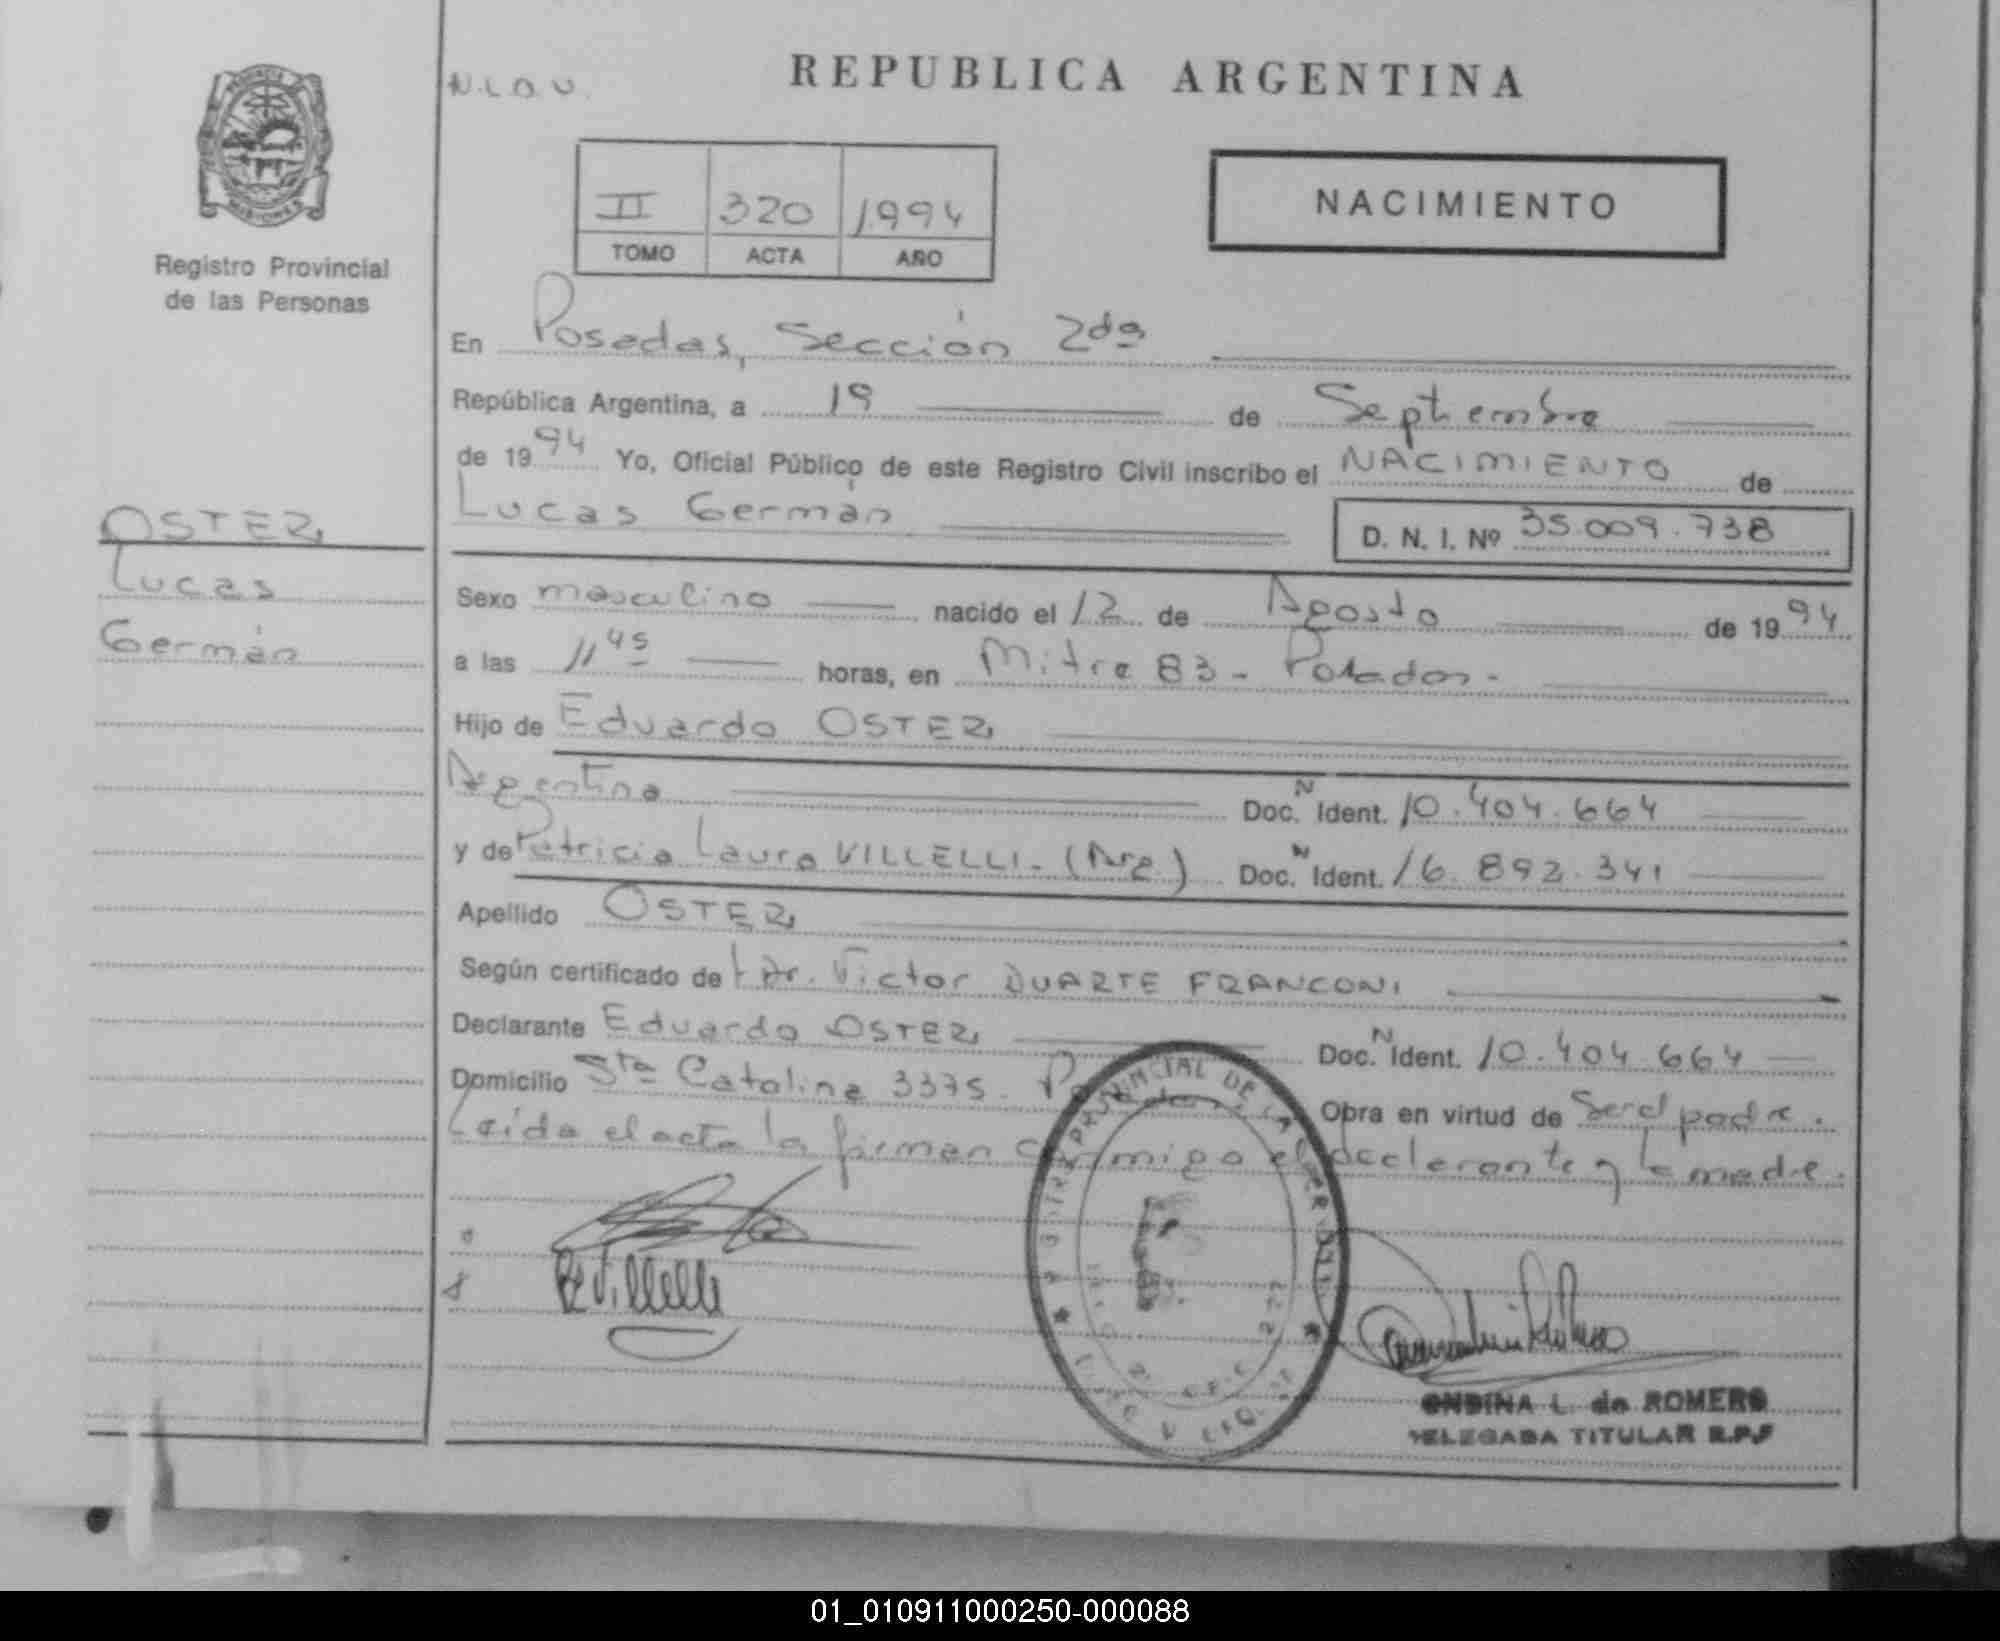 PROVINCIA
MISIONES
Registro Provincial
de las Personas
OSTER
Lucas
Germán
N.L.O.U.
REPUBLICA ARGENTINA
II 320 1.994
TOMO ACTA AÑO
NACIMIENTO
En Posadas, Sección 2da
República Argentina, a 19 de Septiembre
de 1994 Yo, Oficial Público de este Registro Civil inscribo el NACIMIENTO de
Lucas Germán D. N. I. Nº 35.009.738
Sexo masculino nacido el 12 de Agosto de 1994
a las 11 45 horas, en Mitre 83 - Posadas -
Hijo de Eduardo OSTER
Argentina Doc. N Ident. 10.404.664
y de Patricia Laura VILLELLI - (Arg.) Doc. N Ident. 16.892.341
Apellido OSTER
Según certificado de Dr. Victor DUARTE FRANCONI
Declarante Eduardo OSTER Doc. N Ident. 10.404.664
Domicilio Sta Catalina 3375. Posadas Obra en virtud de Ser el padre.
Leída el acta la firman conmigo el declarante y la madre.
P. Villelli
ONDINA L. de ROMERO
DELEGADA TITULAR R.P.P
01_010911000250-000088